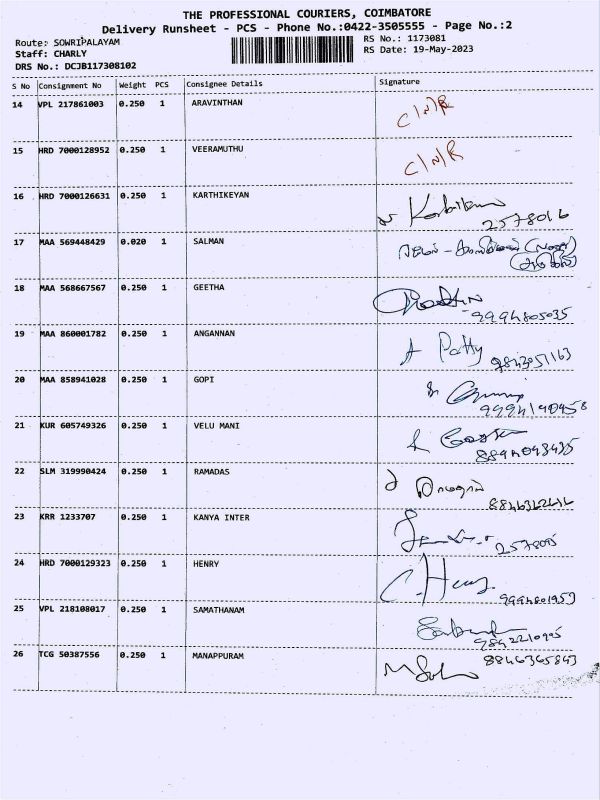 THE PROFESSIONAL COURIERS, COIMBATORE
Delivery Runsheet - PCS - Phone No.:0422-3505555 - Page No.:2
Route: SOWRIPALAYAM RS No.: 1173081
Staff: CHARLY RS Date: 19-May-2023
DRS No.: DCJB117308102
S No Consignment No Weight PCS Consignee Details Signature
14 VPL 217861003 0.250 1 ARAVINTHAN C/N/R
15 HRD 7000128952 0.250 1 VEERAMUTHU C/N/R
16 HRD 7000126631 0.250 1 KARTHIKEYAN
2578016
17 MAA 569448429 0.020 1 SALMAN
18 MAA 568667567 0.250 1 GEETHA
9994805035
19 MAA 860001782 0.250 1 ANGANNAN A Patty
9843051163
20 MAA 858941028 0.250 1 GOPI
9994190458
21 KUR 605749326 0.250 1 VELU MANI
8894093435
22 SLM 319990424 0.250 1 RAMADAS
23 KRR 1233707 0.250 1 KANYA INTER
24 HRD 7000129323 0.250 1 HENRY C. Henry
9994801957
25 VPL 218108017 0.250 1 SAMATHANAM
9842210995
26 TCG 50387556 0.250 1 MANAPPURAM 8846365843